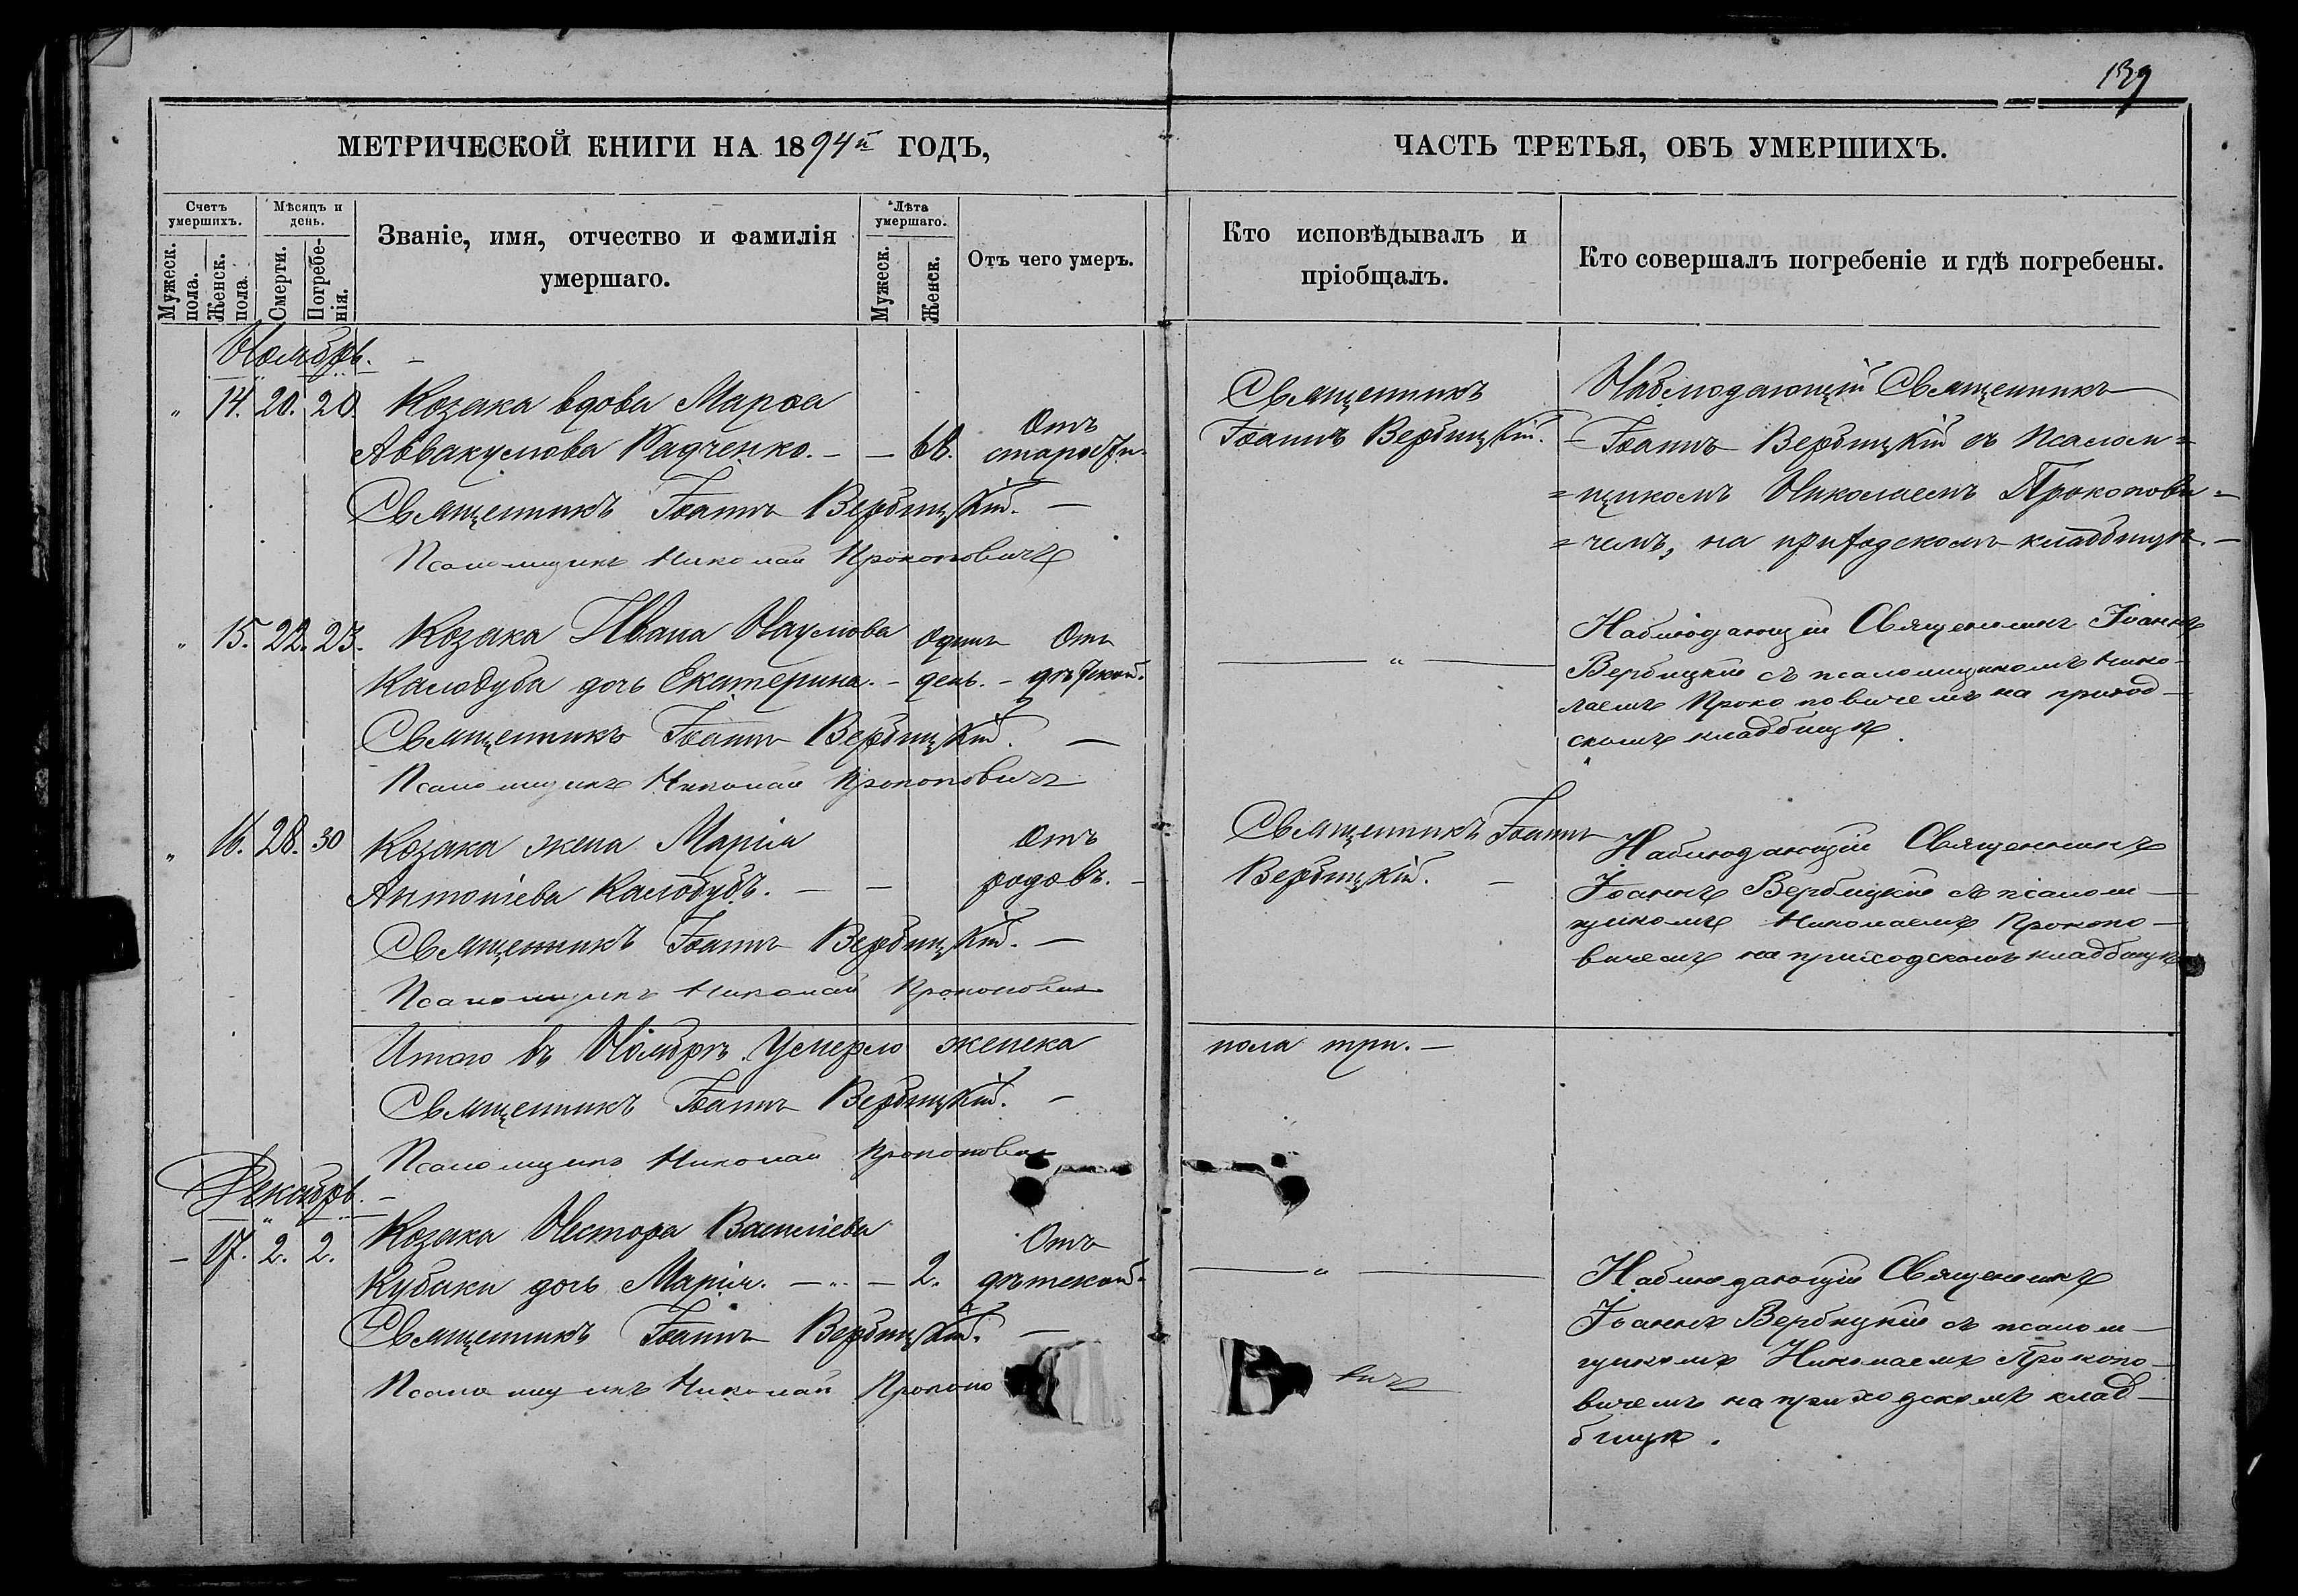 139
МЕТРИЧЕСКОЙ КНИГИ НА 1894й ГОДЪ,
ЧАСТЬ ТРЕТЬЯ, ОБЪ УМЕРШИХЪ.
Счетъ умершихъ.
Мужеск. пола.
Женск. пола.
Мѣсяцъ и день.
Смерти.
Погребенія.
Званіе, имя, отчество и фамилія
умершаго.
Лѣта умершаго.
Мужеск.
Женск.
Отъ чего умеръ.
Кто исповѣдывалъ и
пріобщалъ.
Кто совершалъ погребеніе и гдѣ погребены.
Ноябрь. –
„ 14. 20. 20. Козака вдова Марѳа
Аввакумова Радченко. – – 68. Отъ старости.
Священникъ Іоаннъ Вербицкій. –
Псаломщикъ Николай Прокоповичъ
Священникъ
Іоаннъ Вербицкій.
Наблюдающій Священникъ
= Іоаннъ Вербицкій съ Псалом=
=щикомъ Николаемъ Прокопови=
=чемъ, на приходскомъ кладбищѣ. –
„ 15. 22. 23. Козака Ивана Наумова
Калодуба дочь Екатерина. – одинъ день. – Отъ дѣтской.
Священникъ Іоаннъ Вербицкій. –
Псаломщикъ Николай Прокоповичъ
— „ —
Наблюдающій Священникъ Іоаннъ
Вербицкій съ псаломщикомъ Нико-
лаемъ Прокоповичемъ на приход-
скомъ кладбищѣ.
„ 16. 28. 30 Козака жена Марія
Антоніева Калодубъ. – – Отъ родовъ. –
Священникъ Іоаннъ Вербицкій. –
Псаломщикъ Николай Прокоповичъ
Священникъ Іоаннъ
Вербицкій. –
Наблюдающій Священникъ
Іоаннъ Вербицкій съ псалом-
щикомъ Николаемъ Прокопо-
вичемъ на приходскомъ кладбищѣ
Итого въ Ноябрѣ умерло женска пола три. –
Священникъ Іоаннъ Вербицкій. –
Псаломщикъ Николай Прокоповичъ
Декабрь. –
– 17. 2. 2. Козака Нестора Василіева
Кубаки дочь Марія. – „ – 2. Отъ дѣтской.
Священникъ Іоаннъ Вербицкій. –
Псаломщикъ Николай Прокопо вичъ
— „ —
Наблюдающій Священникъ
Іоаннъ Вербицкій съ псалом-
щикомъ Николаемъ Прокопо-
вичемъ на приходскомъ клад-
бищѣ.